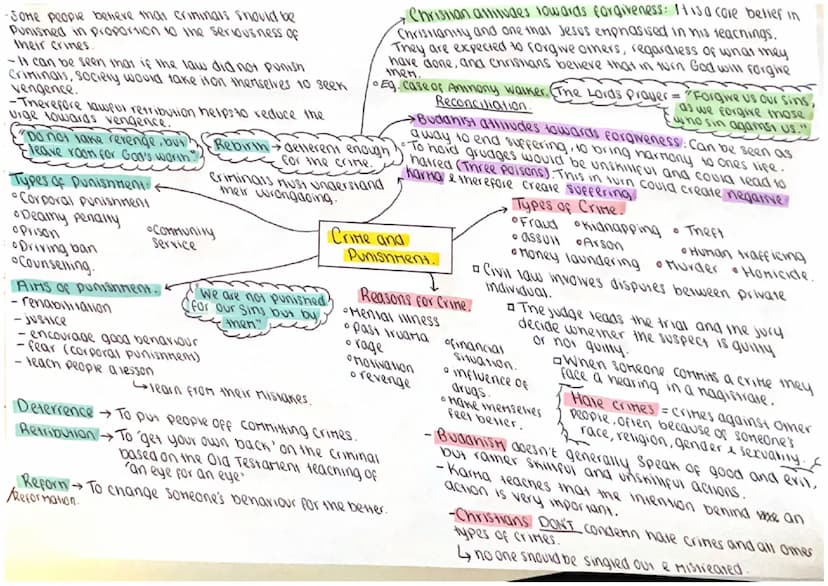 - Some people believe that criminals should be
punished in proportion to the seriousness of
their crimes.
- It can be seen that if the law did not punish
criminals, society would take it on themselves to seek
vengence.
- Therefore lawful retribution helps to reduce the
urge towards vengence.
"Do not take revenge, but
leave room for God's
Rebirth → deterrent enough
for the crime.
Criminals must understand
their wrongdoing.
Christian attitudes towards forgiveness: It is a core belief in
Christianity and one that Jesus emphasised in his teachings.
They are expected to forgive others, regardless of what they
have done, and Christians believe that in turn God will forgive
them.
Eg. Case of Anthony Walker.
Reconciliation.
The Lords prayer = "Forgive us our sins,
as we forgive those
who sin against us."
Buddhist attitudes towards forgiveness: Can be seen as
a way to end suffering, to bring harmony to ones life.
To hold grudges would be unskilful and could lead to
hatred (Three poisons). This in turn could create negative
Karma & therefore create suffering.
Types of Punishment:
Corporal punishment
Death penalty
Prison
Driving ban
Counselling.
Community
service
Crime and
Punishment.
Types of Crime.
Fraud
Kidnapping
Theft
Assult
Arson
Human trafficing
Money laundering
Murder
Homicide.
Civil law involves disputes between private
individual.
The judge leads the trial and the jury
decide whether the suspect is guilty
or not guilty.
When someone commits a crime they
face a hearing in a magistrate.
Hate crimes = crimes against other
people, often because of someone's
race, religion, gender & sexuality.
Aims of punishment.
- rehabilitation
- justice
- encourage good behaviour
- fear (corporal punishment)
- teach people a lesson
↳ learn from their mistakes.
"We are not punished
for our sins but by
them"
Reasons for Crime.
Mental illness
past truama
rage
motivation
revenge
financial
situation.
influence of
drugs.
make themselves
feel better.
Deterrence → To put people off committing crimes.
Retribution → To 'get your own back' on the criminal
based on the Old Testament teaching of
'an eye for an eye'
Reform → To change someone's behaviour for the better.
/Reformation.
- Buddhism doesn't generally speak of good and evil,
but rather skillful and unskilful actions.
- Karma teaches that the intention behind an
action is very important.
- Christians DON'T condemn hate crimes and all other
types of crimes.
↳ no one should be singled out & mistreated.